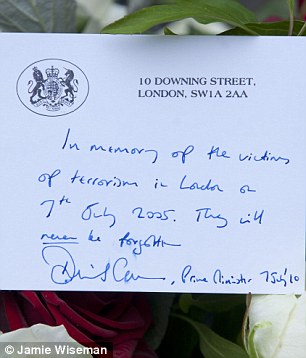 10 DOWNING STREET,
LONDON, SW1A 2AA
In memory of the victims
of terrorism in London on
7th July 2005. They will
never be forgotten
David Cameron, Prime Minister 7 July '10
© Jamie Wiseman